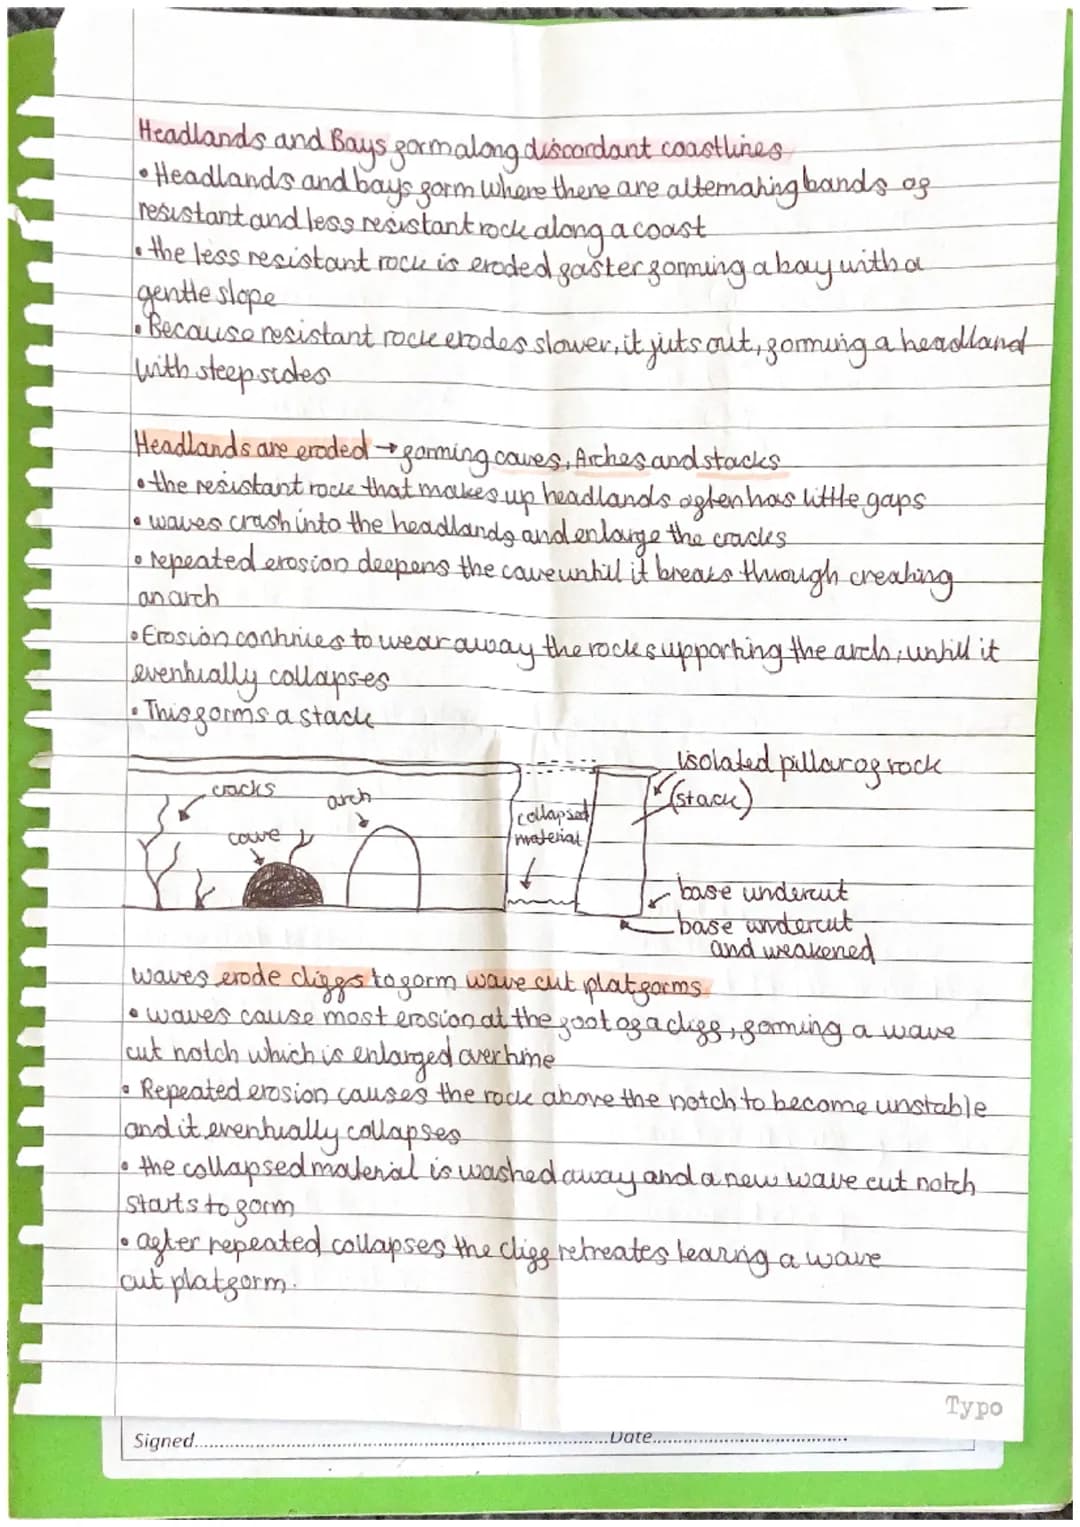 Headlands and Bays form along discordant coastlines
• Headlands and bays form where there are alternating bands of
resistant and less resistant rock along a coast
• the less resistant rock is eroded faster forming a bay with a
gentle slope
• Because resistant rock erodes slower, it juts out, forming a headland
with steep sides
Headlands are eroded → forming caves, Arches and stacks
• the resistant rock that makes up headlands often has little gaps
• waves crash into the headlands and enlarge the cracks
• repeated erosion deepens the cave until it breaks through creating
an arch
• Erosion continues to wear away the rock supporting the arch, until it
eventually collapses
• This forms a stack
isolated pillar of rock
(stack)
cracks
arch
cave
collapsed
material
base undercut
base undercut
and weakened
waves erode cliffs to form wave cut platforms
• waves cause most erosion at the foot of a cliff, forming a wave
cut notch which is enlarged over time
• Repeated erosion causes the rock above the notch to become unstable
and it eventually collapses
• the collapsed material is washed away and a new wave cut notch
starts to form
• after repeated collapses the cliff retreates leaving a wave
cut platform.
Typo
Signed..........Date..........